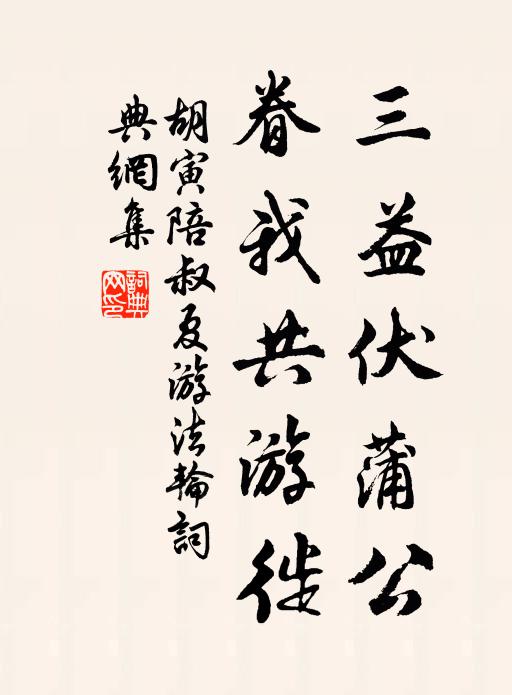 三益伏蒲公
眷我共游徙
胡寅陪叔夏游法輪詞
典網集
詞典
网印